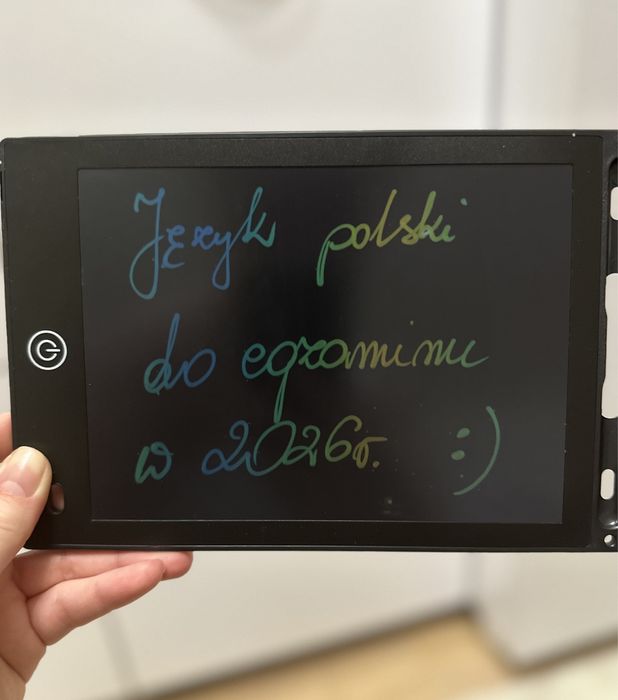 Język polski
do egzaminu
w 2026r. :)